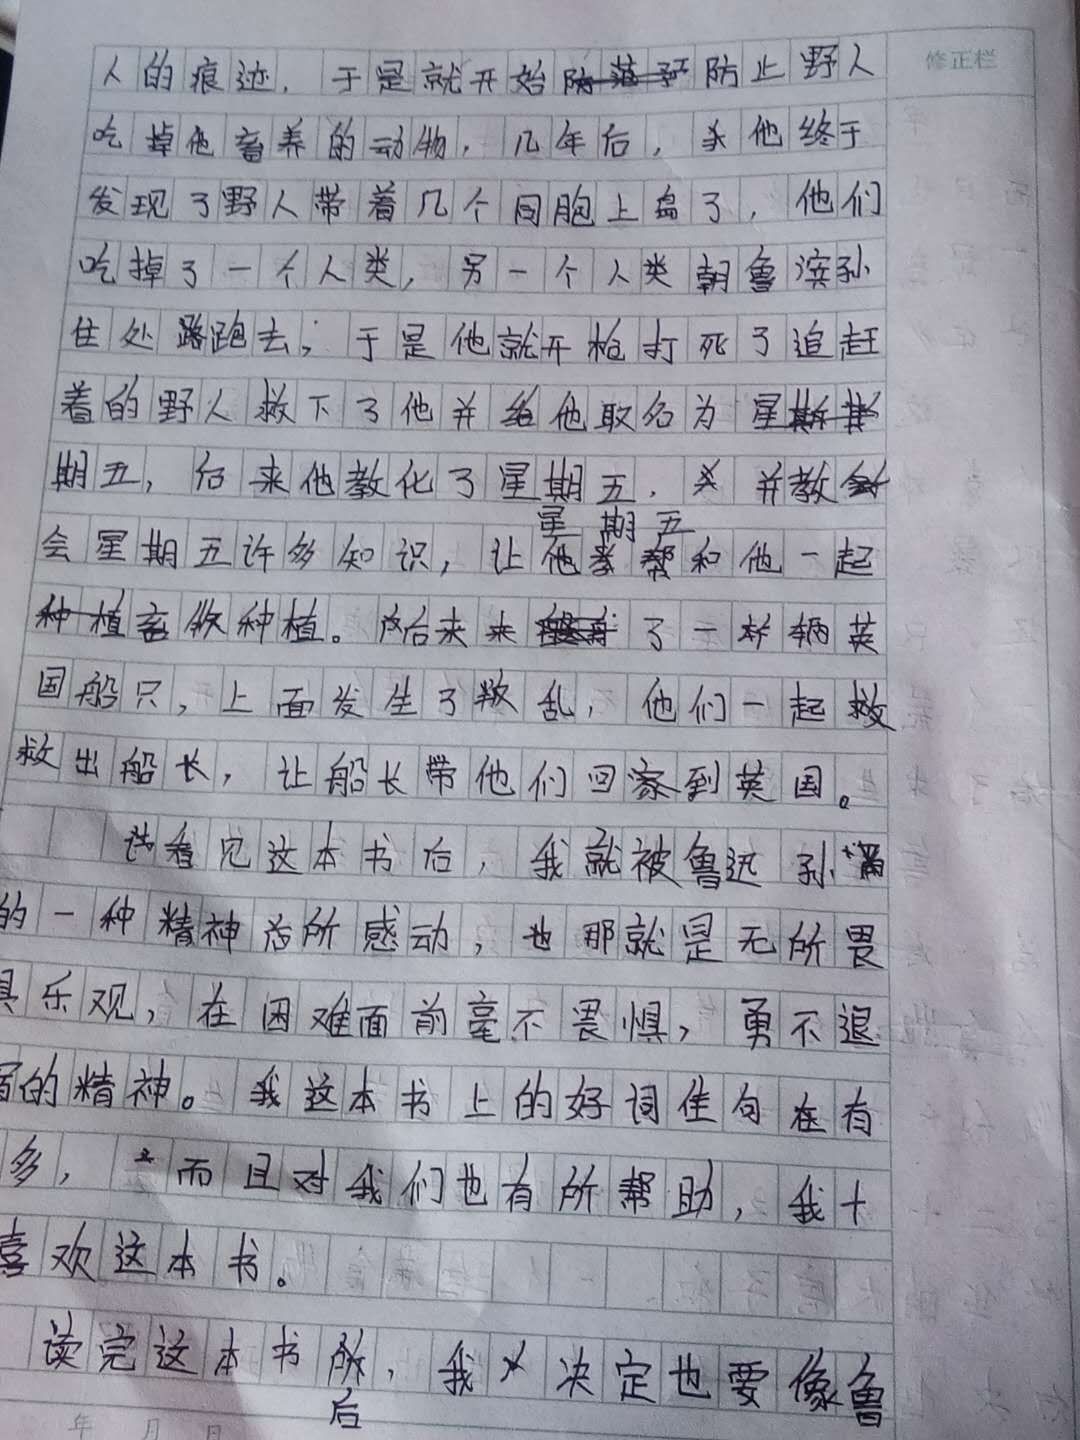 修正栏
人的痕迹，于是就开始防止野人
吃掉他畜养的动物，几年后，他终于
发现了野人带着几个同胞上岛了，他们
吃掉了一个人类，另一个人类朝鲁滨孙
住处跑去；于是他就开枪打死了追赶
着的野人救下了他并给他取名为星
期五，后来他教化了星期五，并教
会星期五许多知识，让星期五和他一起
种植。后来来了一辆英
国船只，上面发生了叛乱，他们一起救
救出船长，让船长带他们回家到英国。
读完这本书后，我就被鲁迅孙
的一种精神所感动，那就是无所畏
惧乐观，在困难面前毫不畏惧，勇不退
缩的精神。我这本书上的好词佳句在有
多，而且对我们也有所帮助，我十
喜欢这本书。
读完这本书后，我决定也要像鲁
年 月 日